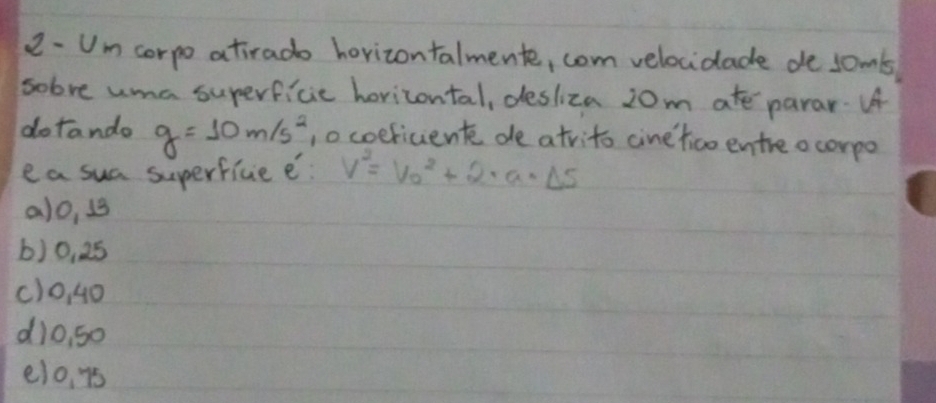 2- Um corpo atirado horizontalmente, com velocidade de 10m/s,
sobre uma superfície horizontal, desliza 20m até parar. A
dotando g = 10 m/s², o coeficiente de atrito cinético entre o corpo
e a sua superfície é: V² = V₀² + 2 · a · ΔS
a) 0,13
b) 0,25
c) 0,40
d) 0,50
e) 0,75